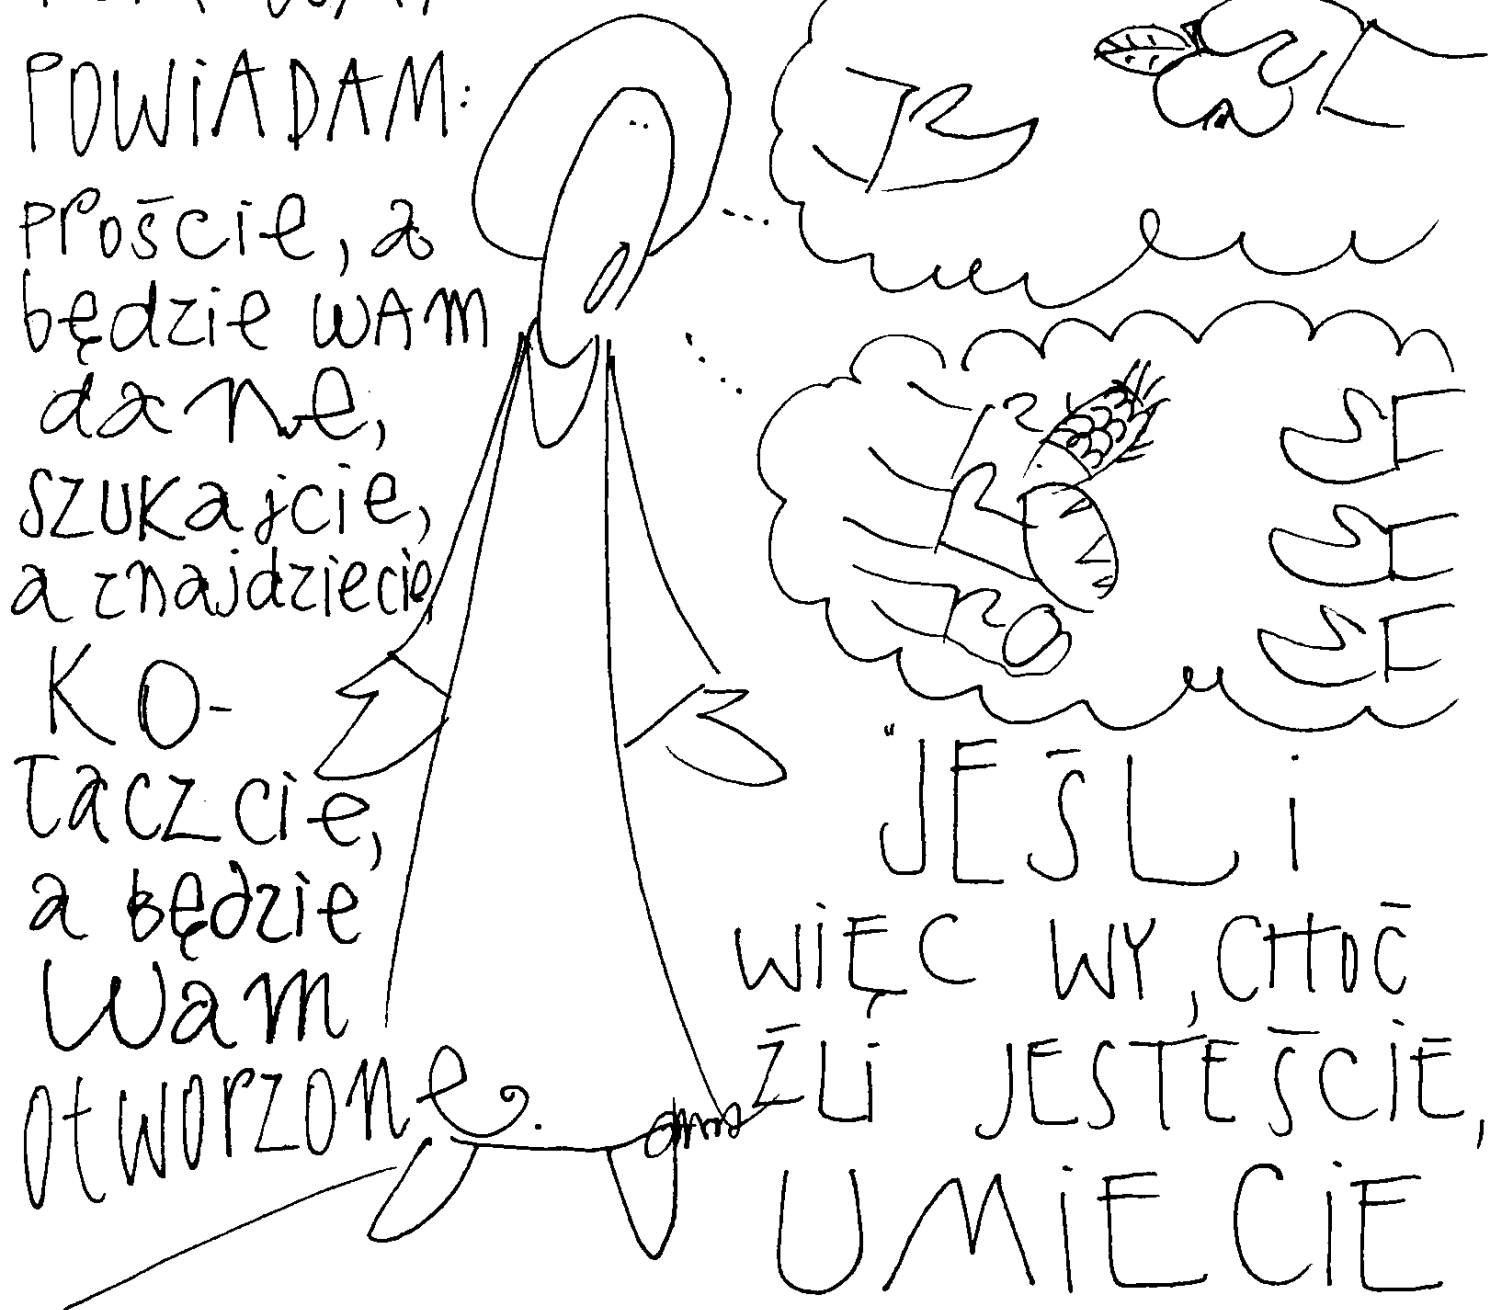 POWiADAM:
Proście, a
będzie WAM
dane,
szukajcie,
a znajdziecie
KO-
łaczcie,
a będzie
Wam
otworzone.
"JEŚLi
WiĘC WY, CHOĆ
ŹLi JESTEŚCIE,
UMiECiE